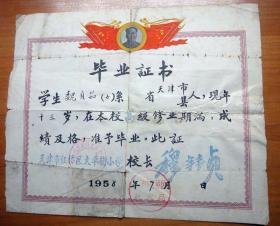 毕业证书
学生魏月茹(女)系 省天津市县人,现年
十三岁,在本校高级修业期满,成
绩及格,准予毕业,此证
天津市红桥区大丰街小学 校长
1958年7月 日